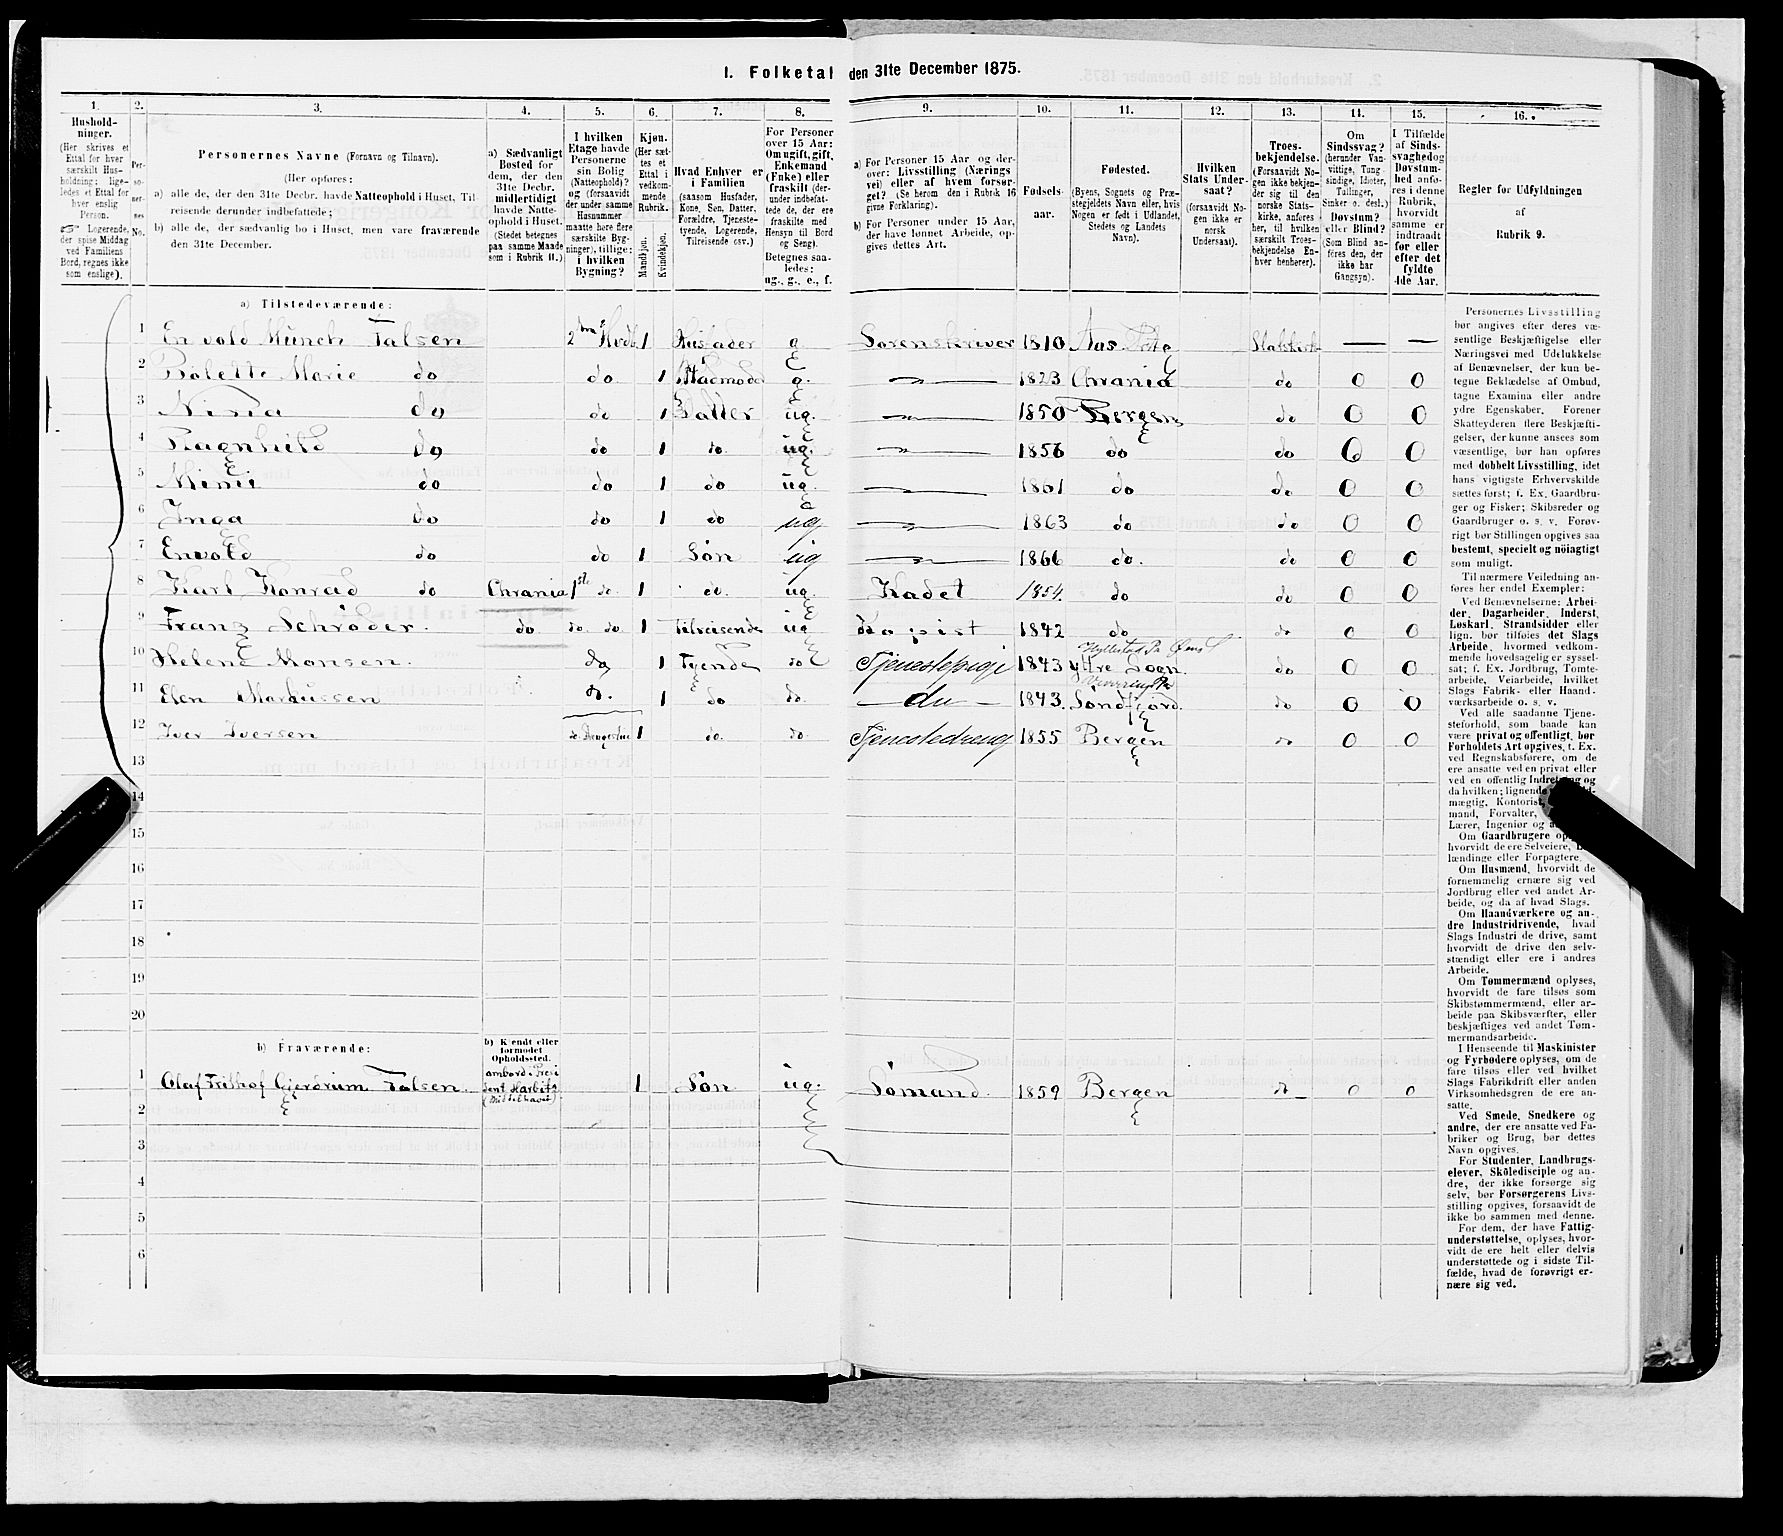 1. Folketal den 31te December 1875.
1. 2. 3. 4. 5. 6. 7. 8. 9. 10. 11. 12. 13. 14. 15. 16.
Hushold-
ninger.
(Her skrives et
Ettal for hver
særskilt Hus-
holdning; lige-
ledes et Ettal for
hver enslig
Person.
Logerende,
der spise Middag
ved Familiens
Bord, regnes ikke
som enslige).
Per-
so-
ner-
nes
No.
Personernes Navne (Fornavn og Tilnavn).
(Her opføres:
a) alle de, der den 31te Decbr. havde Natteophold i Huset, Til-
reisende derunder indbefattede;
b) alle de, der sædvanlig bo i Huset, men vare fraværende
den 31te December.
a) Sædvanligt
Bosted for
dem, der den
31te Decbr.
midlertidigt
havde Natte-
ophold i Huset.
(Stedet betegnes
paa samme Maade
som i Rubrik 11.)
I hvilken
Etage havde
Personerne
sin Bolig
(Natteophold)?
og (forsaavidt
der under samme
Hasnummer
maatte høre flere
særskilte Byg-
ninger), tillige:
i hvilken
Bygning?
Kjøn.
(Her sæt-
tes et
Ettal i
vedkom-
mende
Rubrik.
Mandkjøn.
Kvindekjøn.
Hvad Enhver er
i Familien
(saasom Husfader,
Kone, Søn, Datter,
Forældre, Tjeneste-
tyende, Logerende,
Tilreisende osv.)
For Personer
over 15 Aar:
Om ugift, gift,
Enkemand
(Enke) eller
fraskilt (der-
under indbefat-
tede de, der ere
fraskilte med
Hensyn til Bord
og Seng).
Betegnes saa-
ledes:
ug., g., e., f.
a) For Personer 15 Aar og der-
over: Livsstilling (Nærings
vei) eller af hvem forsør-
get? (Se herom den i Rubrik 16
givne Forklaring).
b) For Personer under 15 Aar,
der have lønnet Arbeide, op-
gives dettes Art.
Fødsels-
aar.
Fødested.
(Byens, Sognets og Præ-
stegjeldets Navn eller, hvis
Nogen er født i Udlandet,
Stedets og Landets
Navn).
Hvilken
Stats Under-
saat?
(forsaavidt No-
gen ikke er
norsk
Undersaat).
Troes-
bekjendelse.
(Forsaavidt No-
gen ikke bekjen-
der sig til den
norske Stats-
kirke, anføres
her, til hvilken
særskilt Troes-
bekjendelse En-
hver henhører).
Om
Sindssvag?
(herunder Van-
vittige, Tung-
sindige, Idioter,
Tullinger,
Sinker o. desl.)
Døvstum?
eller Blind?
(Som Blind an-
føres den, der
ikke har
Gangsyn).
I Tilfælde
af Sinds-
svaghed og
Døvstum-
hed anfø-
res i denne
Rubrik,
hvorvidt
samme er
indtraadt
før eller
efter det
fyldte
4de Aar.
Regler for Udfyldningen
af
Rubrik 9.
a) Tilstedeværende:
1 Envold Munch Falsen 2den Hvdb 1 Husfader g Sorenskriver 1810 Aas Statskirk — —
2 Bolette Marie do do 1 Husmoder g. — 1823 Chrania do 0 0
3 Nina do do 1 Datter ug. — 1850 Bergen do 0 0
4 Ragnhild do do 1 do. ug. — 1856 do do 0 0
5 Mimi do do 1 do ug. — 1861 do do 0 0
6 Inga do do 1 do ug — 1863 do do 0 0
7 Envold do do 1 Søn ug — 1866 do. do 0 0
8 Karl Konrad do Chrania 1ste do. 1 do. ug. Kadet 1854. do do 0 0
9 Franz Schrøder. do do. do. 1 Tilreisende ug Kopist 1842 do do 0 0
10 Helene Monsen. do 1 Tyende do Tjenestepige 1843 Yttre Sogn. do 0 0
11 Elen Markussen do. 1 do do. — do — 1843. Søndfjord. do 0 0
12 Iver Iversen do. 1 do. do Tjenestedreng 1855 Bergen do 0 0
13
14
15
16
17
18
19
20
b) Fraværende:
b) Kjendt eller
formodet
Opholdssted.
1 Olaf Frithof Gjerdrum Falsen. ombord i Presi
dent Harbitz
(Middelhavet) 1 Søn ug. Sømand. 1859 Bergen do 0 0
2
3
4
5
6
Personernes Livsstilling
bør angives efter deres væ-
sentlige Beskjæftigelse eller
Næringsvei med Udelukkelse
af Benævnelser, der kun be-
tegne Beklædelse af Ombud,
tagne Examina eller andre
ydre Egenskaber. Forener
Skatteyderen flere Beskjæfti-
gelser, der kunne ansees som
væsentlige, bør han opføres
med dobbelt Livsstilling, idet
hans vigtigste Erhvervskilde
sættes først; f. Ex. Gaardbru-
ger og Fisker; Skibsreder og
Gaardbruger o. s. v. Forøv-
rigt bør Stillingen opgives saa
bestemt, specielt og nöiagtigt
som muligt.
Til nærmere Veiledning an-
føres her endel Exempler:
Ved Benævnelserne: Arbei-
der, Dagarbeider, Inderst,
Løskarl, Strandsidder eller
lign. bør tilføies det Slags
Arbeide, hvormed vedkom-
mende hovedsagelig er syssel-
sat; f. Ex. Jordbrug, Tomte-
arbeide, Veiarbeide, hvilket
Slags Fabrik- eller Haand-
værksarbeide o. s. v.
Ved alle saadanne Tjene-
steforhold, som baade kan
være privat og offentligt, bør
Forholdets Art opgives, t. Ex.
ved Regnskabsførere, om de
ere ansatte ved en privat eller
ved en offentlig Indretning og
da hvilken; lignende
mægtig, Kontorist,
mand, Forvalter,
Lærer, Ingeniør og
Om Gaardbrugere
hvorvidt de ere Selveiere,
lændinge eller Forpagtere.
Om Husmænd, hvorvidt de
fornemmelig ernære sig ved
Jordbrug eller ved andet Ar-
beide, og da af hvad Slags.
Om Haandværkere og an-
dre Industridrivende, hvad
Slags Industri de drive, samt
hvorvidt de drive den selv-
stændigt eller ere i andres
Arbeide.
Om Tømmermænd oplyses,
hvorvidt de fare tilsøs som
Skibstømmermænd, eller ar-
beide paa Skibsværfter, eller
beskjæftiges ved andet Tøm-
mermandsarbeide.
I Henseende til Maskinister
og Fyrbødere oplyses, om de
fare tilsøs eller ved hvilket
Slags Fabrikdrift eller anden
Virksomhedsgren de ere an-
satte.
Ved Smede, Snedkere og
andre, der ere ansatte ved Fa-
briker og Brug, bør dettes
Navn opgives.
For Studenter, Landbrugs-
elever, Skoledisciple og an-
dre, der ikke forsørge sig
selv, bør Forsørgerens Livs-
stilling opgives, forsaavidt de
ikke bo sammen med denne.
For dem, der have Fattig-
understøttelse, oplyses, hvor-
vidt de ere helt eller delvis
understøttede og i sidste Til-
fælde, hvad de forøvrigt er-
nære sig ved.